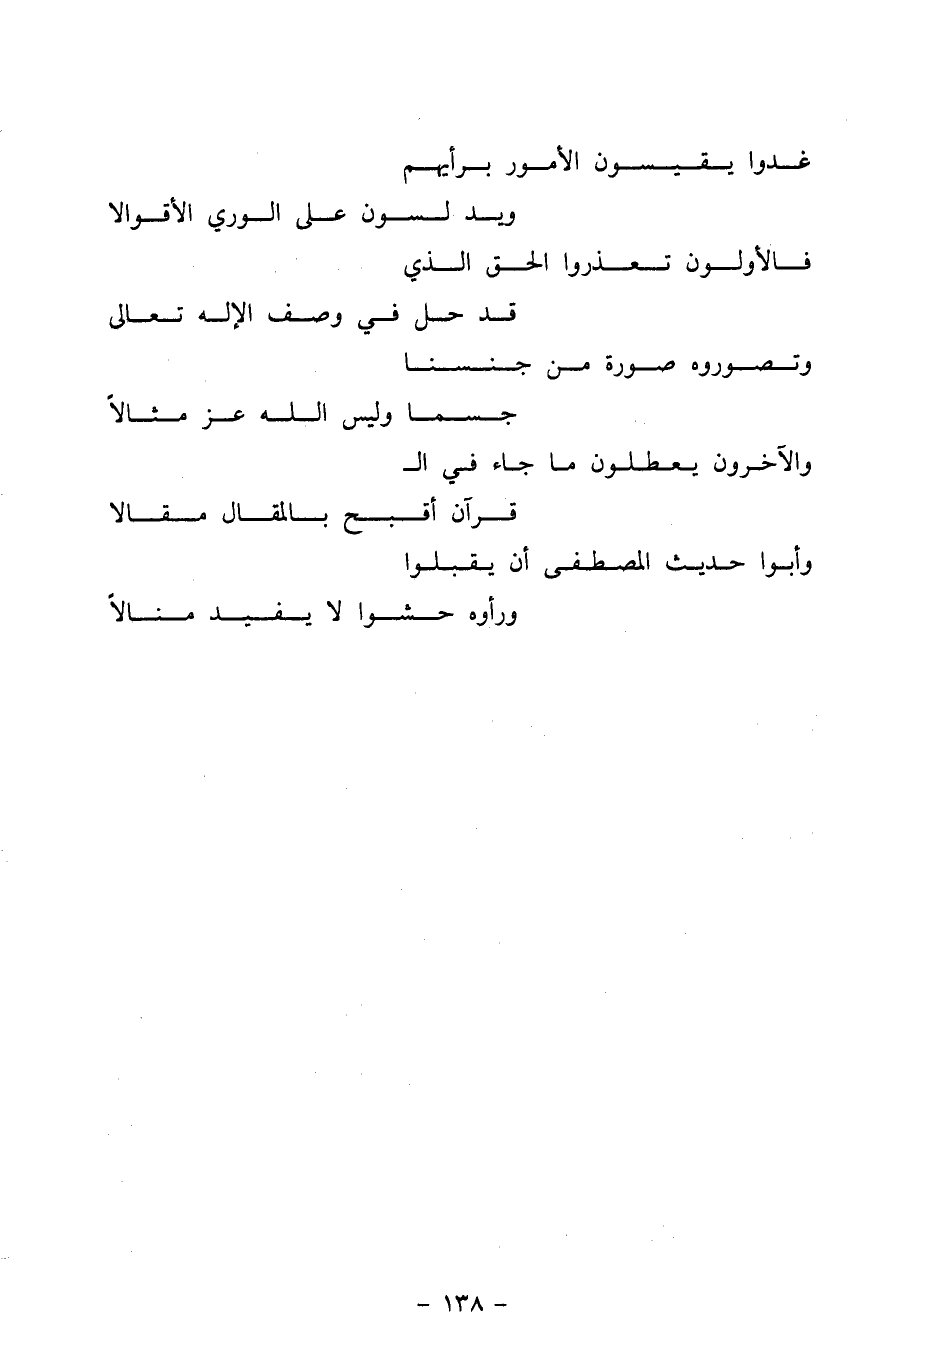 غدوا يقيسون الأمور برأيهم
ويد لسون على الوري الأقوالا
فالأولون تعذروا الحق الذي
قد حل في وصف الإله تعالى
وتصوروه صورة من جنسنا
جسما وليس الله عز مثالاً
والآخرون يعطلون ما جاء في الـ
قرآن أقبح بالمقال مقالا
وأبوا حديث المصطفى أن يقبلوا
ورأوه حشوا لا يفيد منالاً
- ١٣٨ -